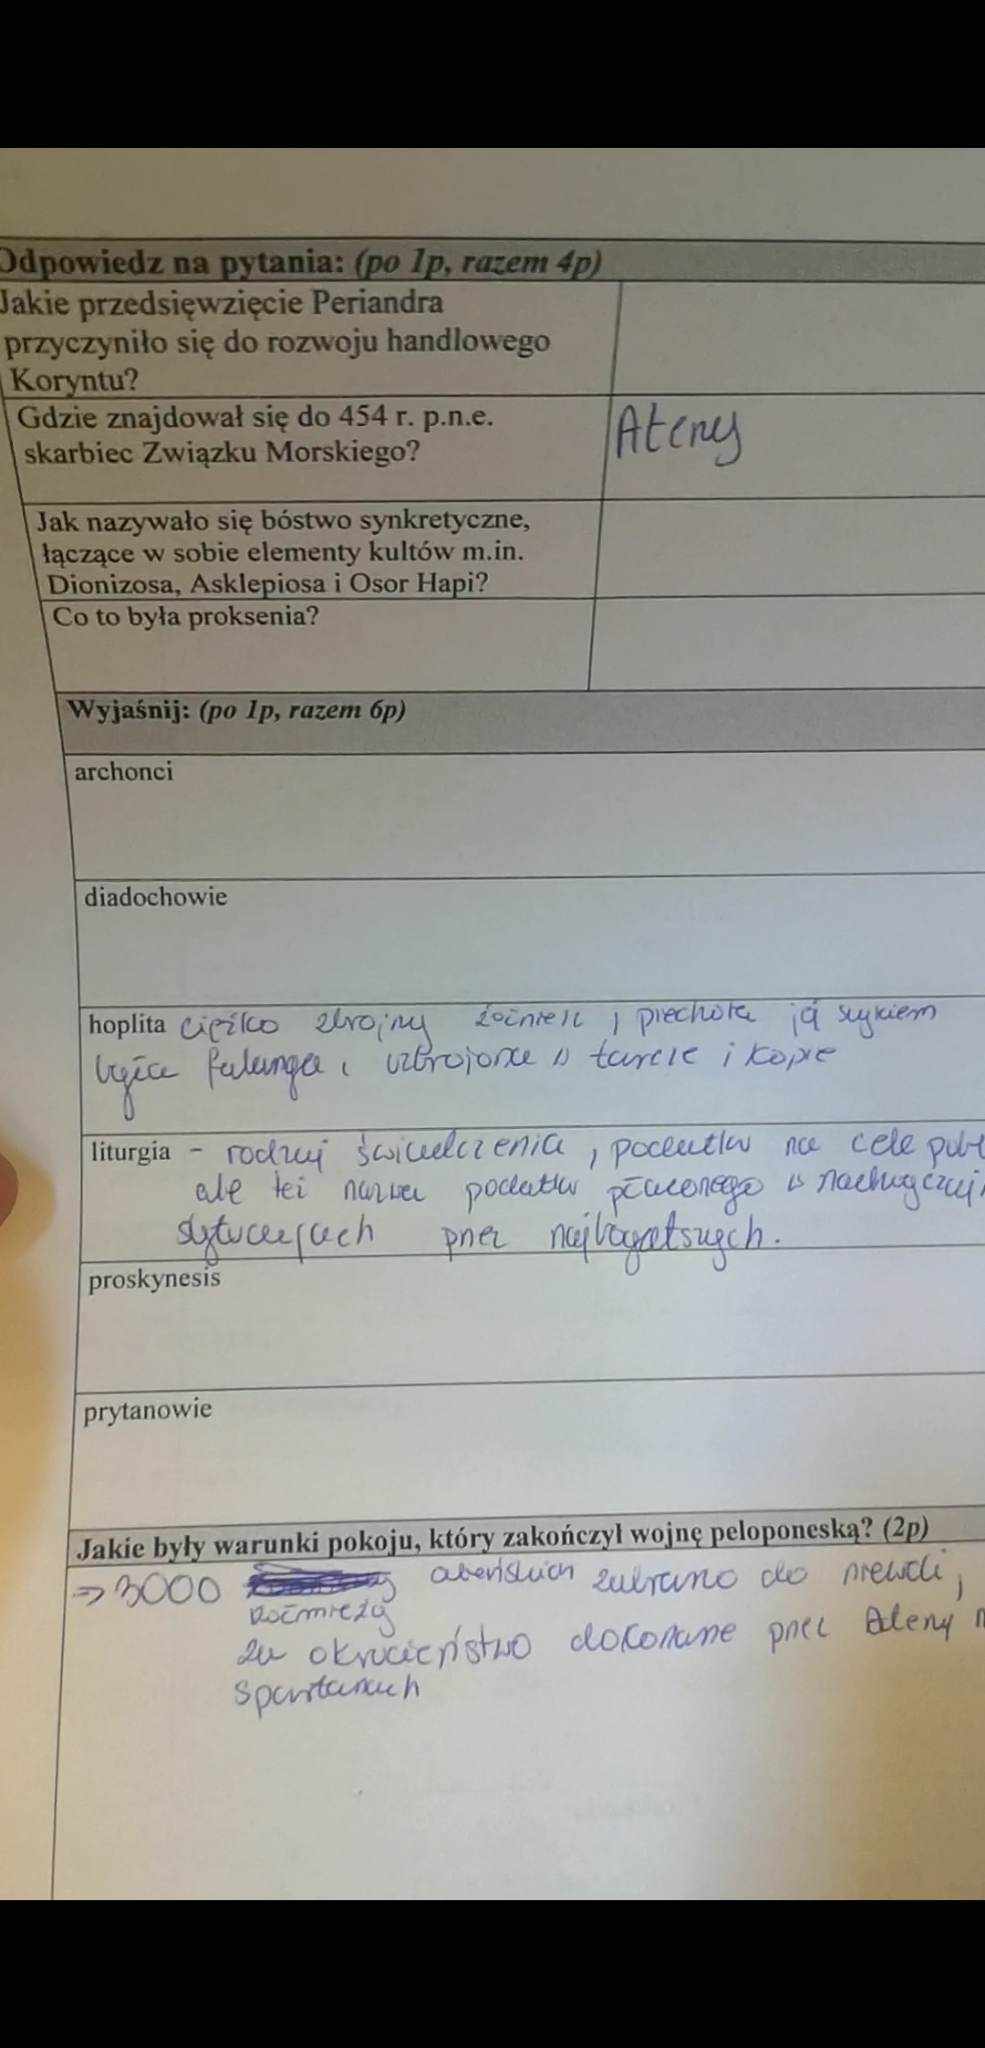 Odpowiedz na pytania: (po 1p, razem 4p)
Jakie przedsięwzięcie Periandra
przyczyniło się do rozwoju handlowego
Koryntu?
Gdzie znajdował się do 454 r. p.n.e.
skarbiec Związku Morskiego?
Ateny
Jak nazywało się bóstwo synkretyczne,
łączące w sobie elementy kultów m.in.
Dionizosa, Asklepiosa i Osor Hapi?
Co to była proksenia?
Wyjaśnij: (po 1p, razem 6p)
archonci
diadochowie
hoplita ciężko zbrojny żołnierz, piechota ją szykiem
była falanga, uzbrojona w tarcie i kopie
liturgia - rodzaj świadczenia, podatku na cele
ale też nazwa podatku płaconego w
sytuacjach przez najbogatszych.
proskynesis
prytanowie
Jakie były warunki pokoju, który zakończył wojnę peloponeską? (2p)
⇒ 3000 ateńskich zabrano do niewoli,
żołnierzy
za okrucieństwo dokonane przez Ateny
Spartanach